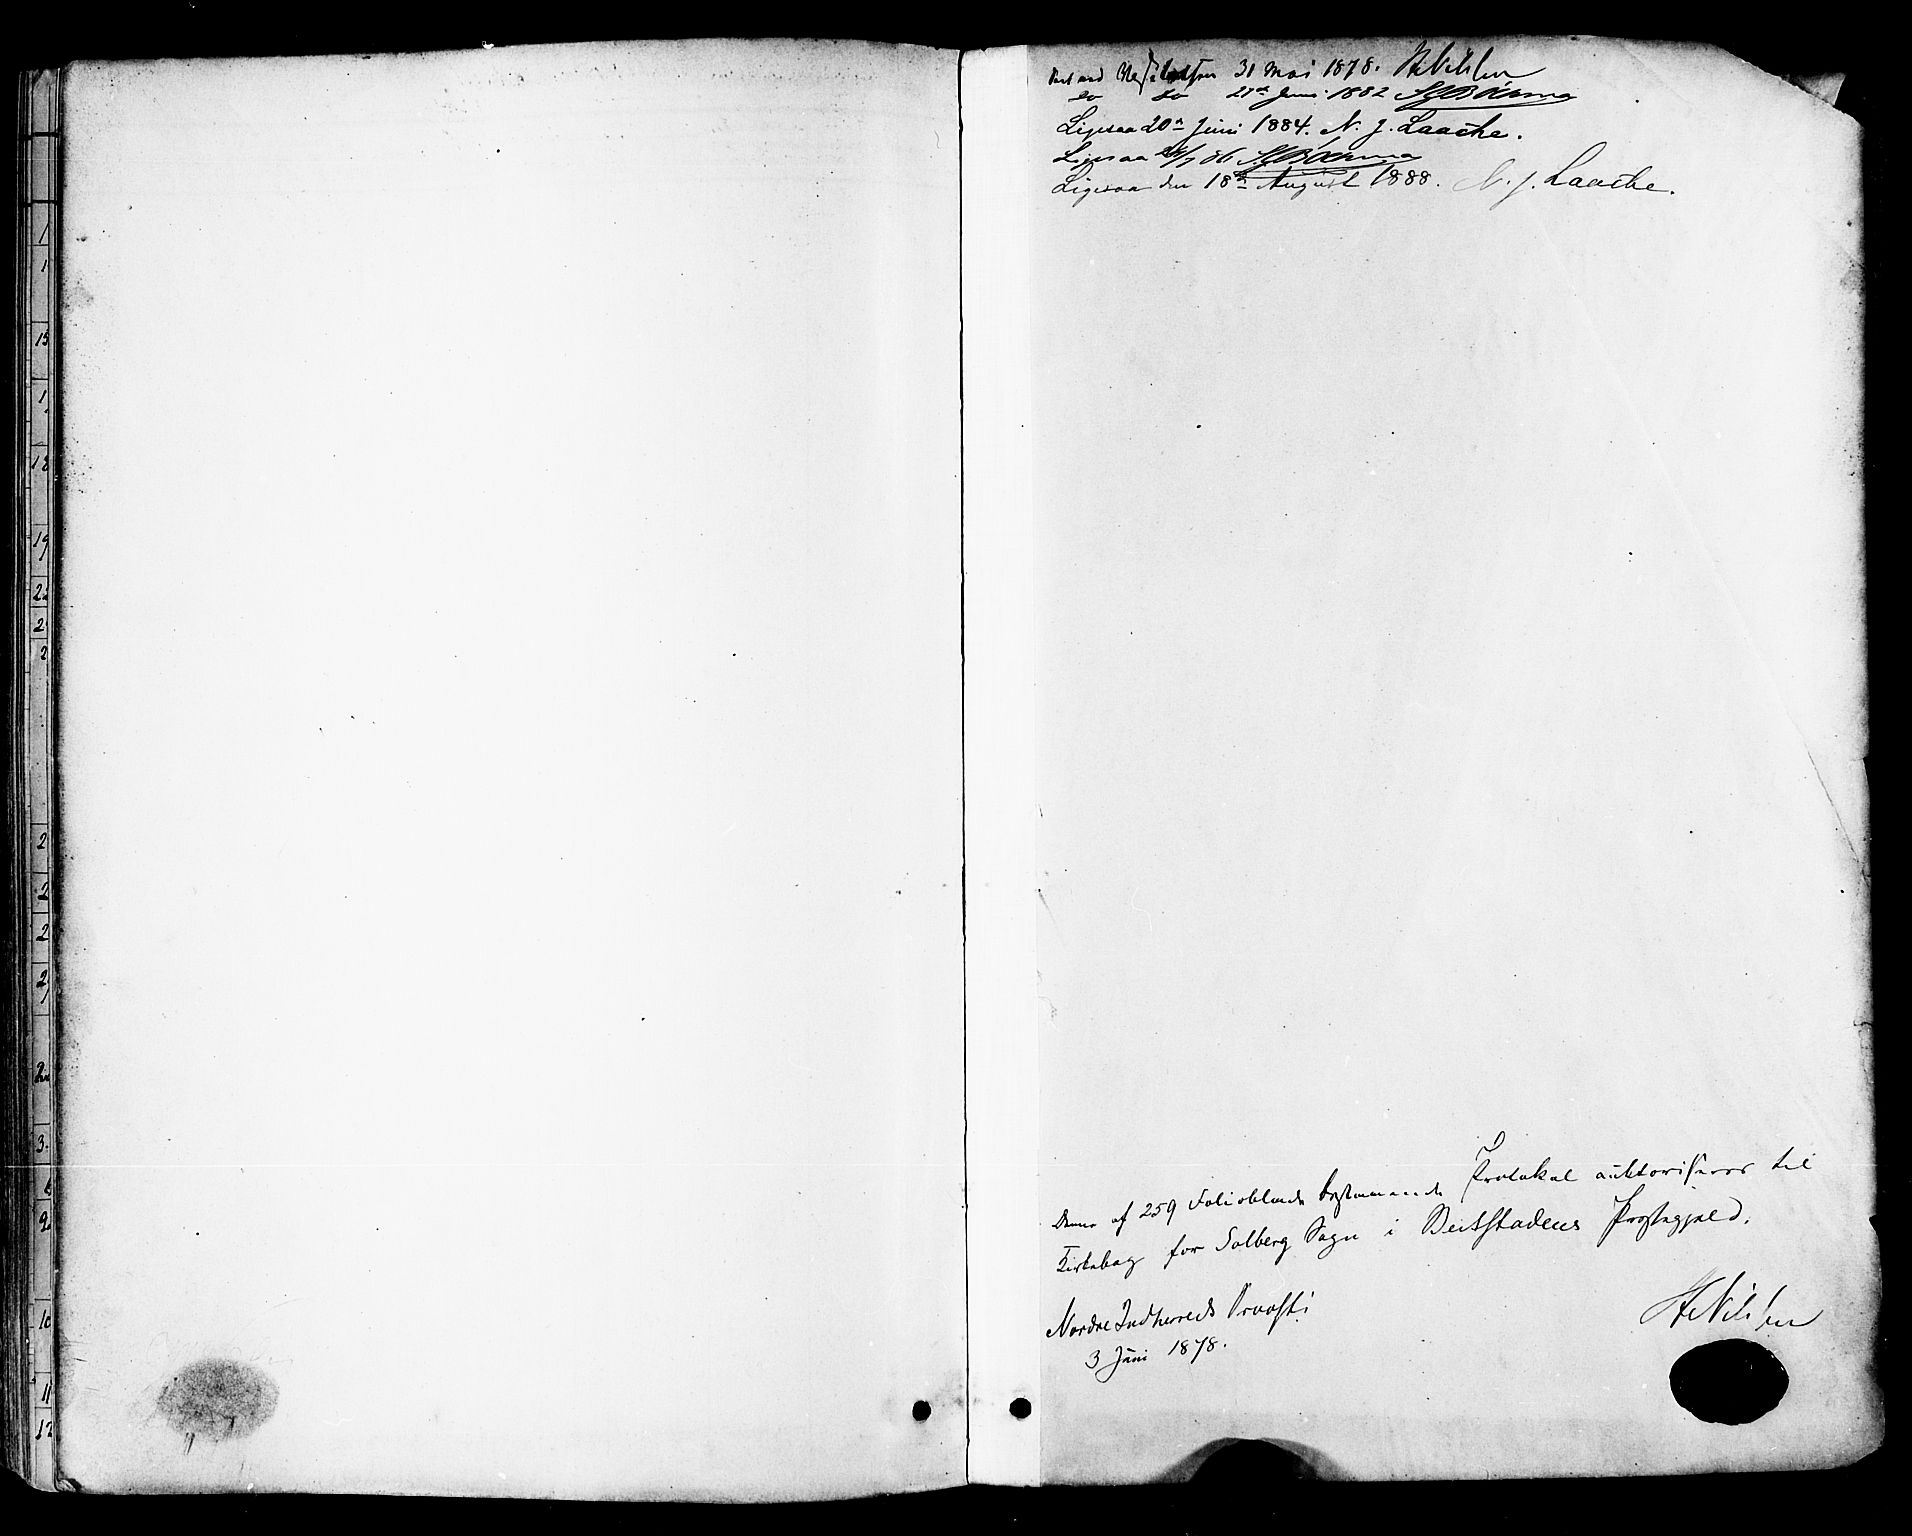 1
1
15
1
18
19
22
2
2
2
2
2
2
2
3
6
9
10
11
12
31 Mai 1878. HNilssen
do do 27de Juni 1882
Ligesaa 20de Juni 1884. N. J. Laache.
Ligesaa 86
Ligesaa den 18de August 1888. N. J. Laache.
Denne af 259 Folioblade bestaaende Protokol auktoriseres til
Kirkebog for Solberg Sogn i Beitstadens Præstegjeld.
Nordre Indherreds Provsti
3 Juni 1878.
HNilssen